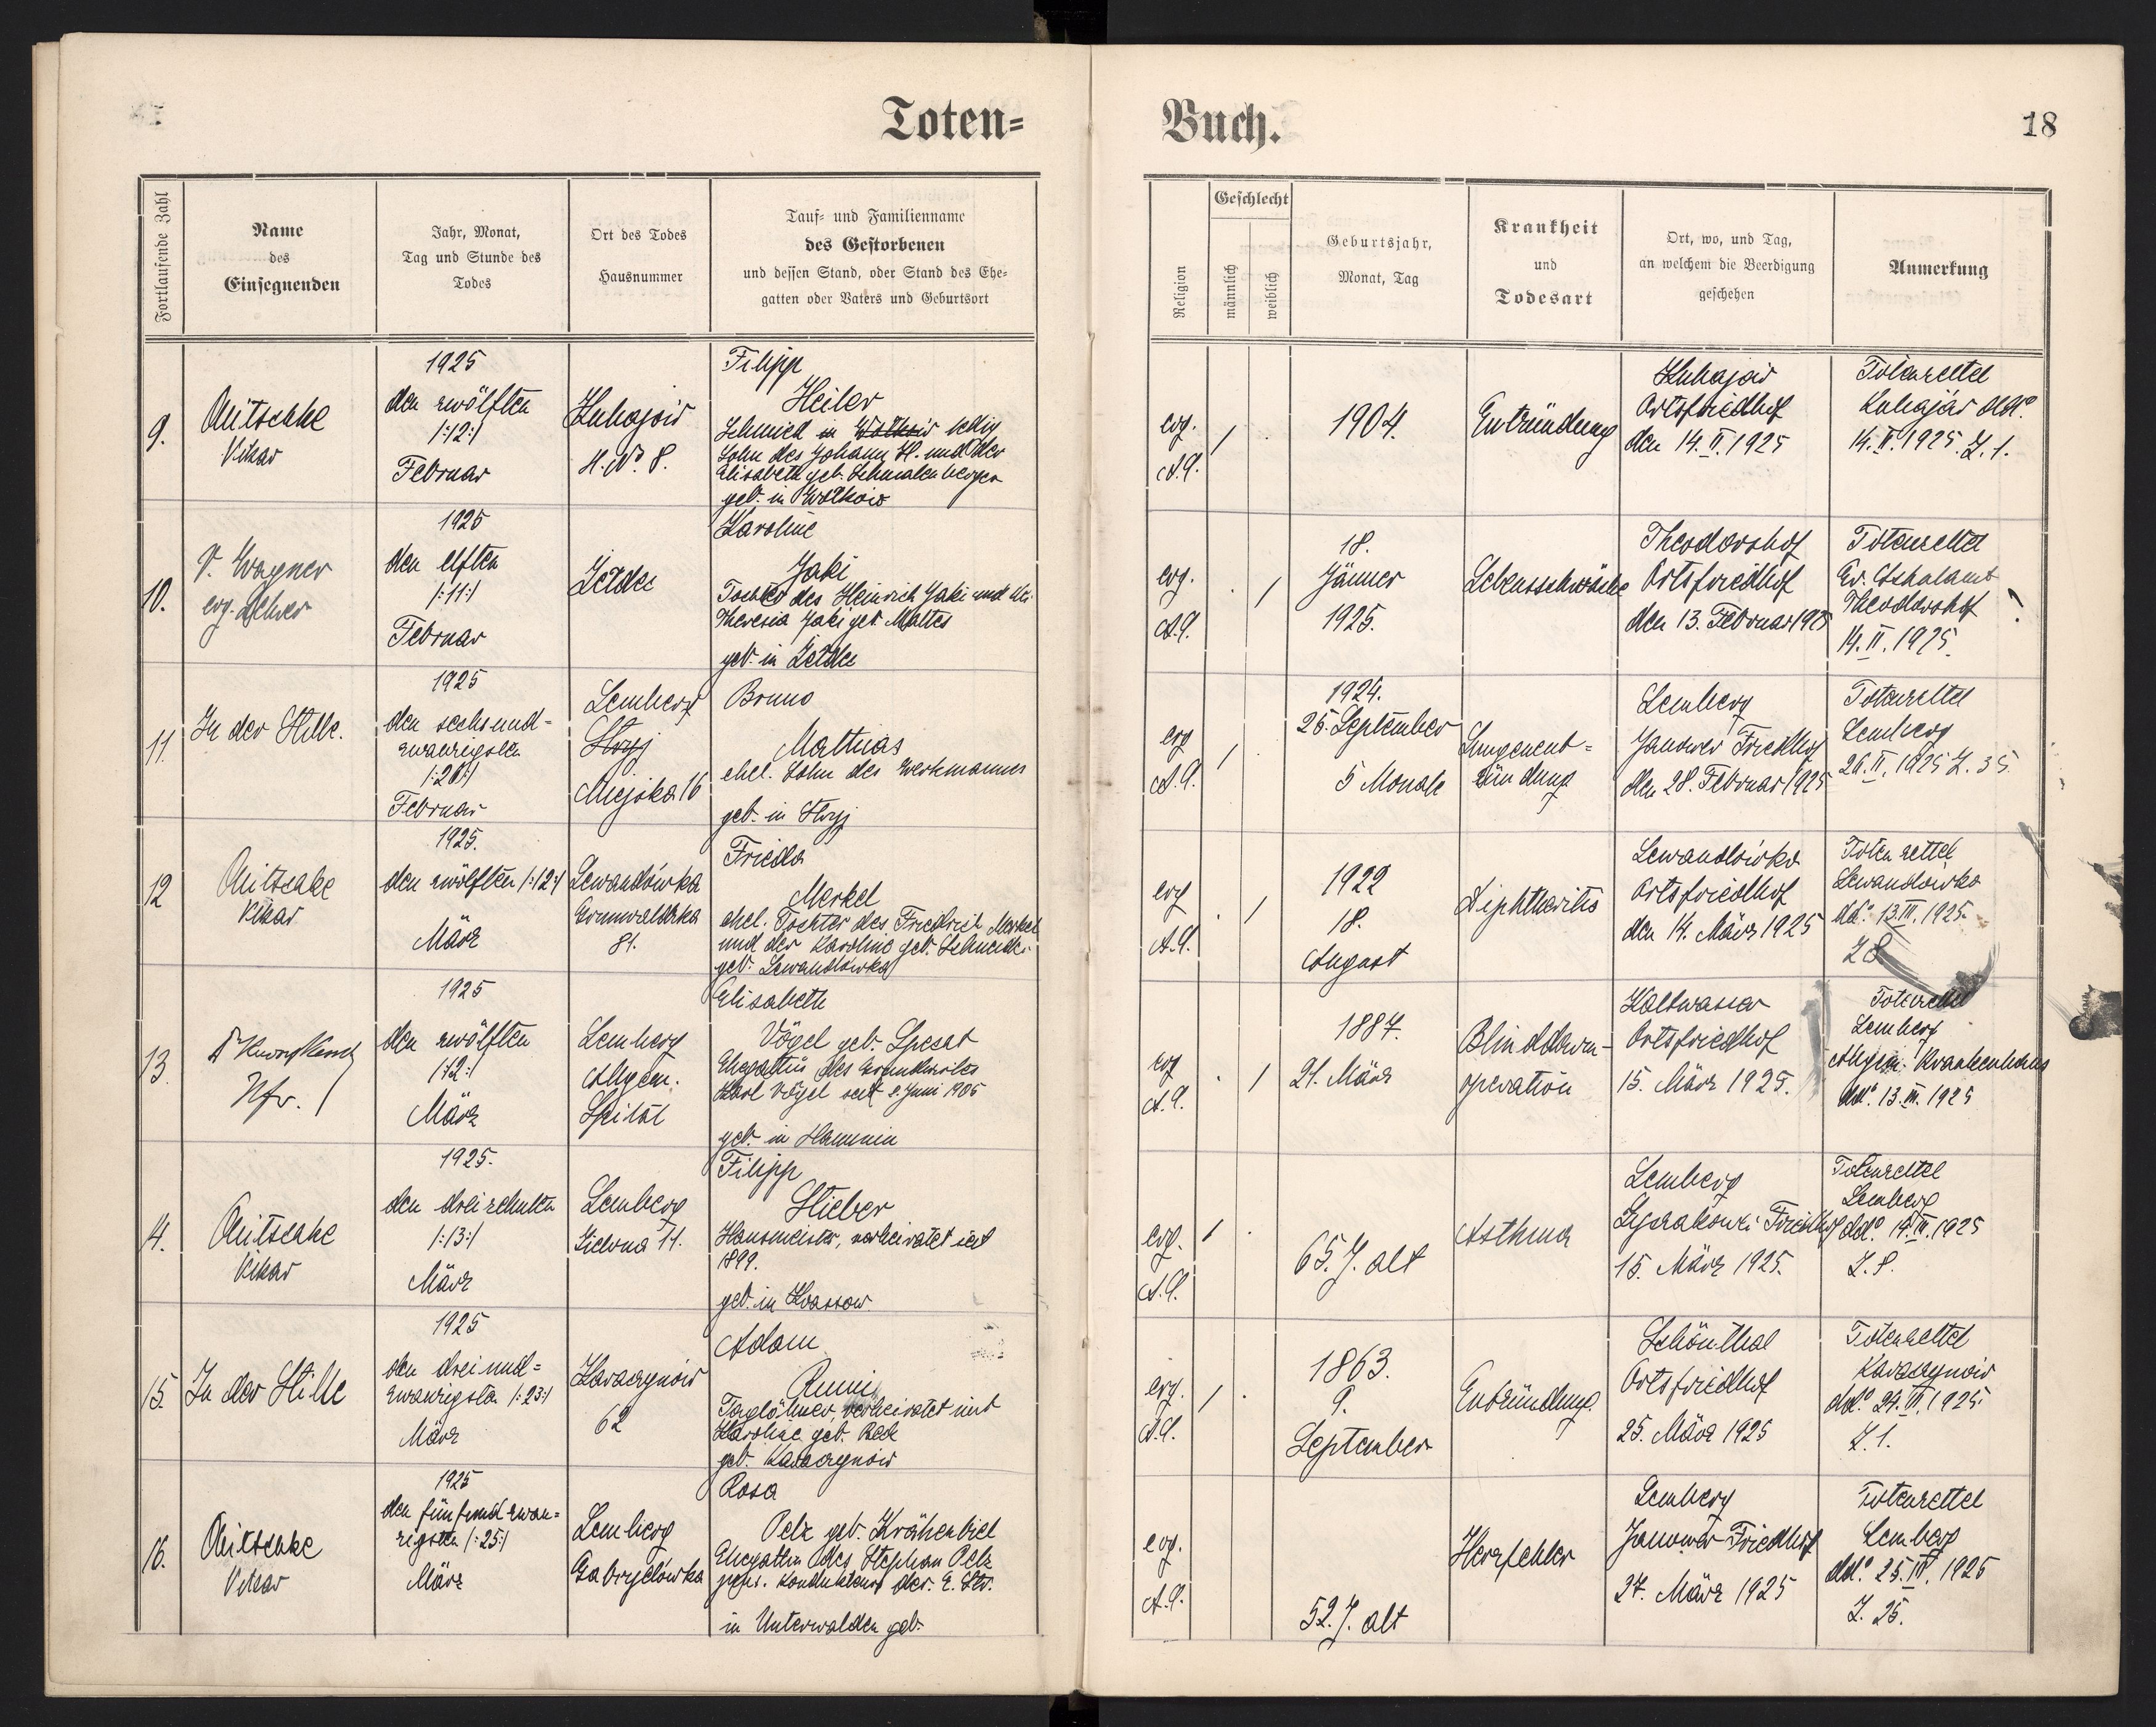 Toten=
Buch.
18
Fortlaufende Zahl
Name
des
Einsegnenden
Jahr, Monat,
Tag und Stunde des
Todes
Ort des Todes
Hausnummer
Tauf= und Familienname
des Gestorbenen
und dessen Stand, oder Stand des Ehe=
gatten oder Vaters und Geburtsort
Religion
Geschlecht
männlich
weiblich
Geburtsjahr,
Monat, Tag
Krankheit
und
Todesart
Ort, wo, und Tag,
an welchem die Beerdigung
geschehen
Anmerkung
9.
Nitschke
Vikar
1925
den zwölften
/:12:/
Februar
Kuhajow
H. No 8.
Filipp
Heiler
Schmied in Wolkow ledig
Sohn des Johann H. und der
Elisabeth geb. Schmalenberger
geb. in Wolkow
evg.
A.C.
/ .
1904.
Entzündung
Kuhajow
Ortsfriedhof
den 14. II. 1925
Totenzettel
Kuhajów ddo
14. II. 1925. Z. 1.
10.
V. Wagner
evg. Lehrer
1925
den elften
/:11:/
Februar
Karoline
Jaki
Tochter des Heinrich Jaki und der
Theresia Jaki geb. Mattes
geb. in
evg.
A.C.
. /
18.
Jänner
1925.
Lebensschwäche
Theodorshof
Ortsfriedhof
den 13. Februar 1925
Totenzettel
Ev. Schulamt
Theodorshof
14. II. 1925.
?
11.
In der Stille.
1925
den sechsund=
zwanzigsten
/:26:/
Februar
Lemberg
Stryj
Miejska 16
Bruno
Mathias
ehel. Sohn des Werkmannes
geb. in Stryj
evg
A.C.
/ .
1924.
25. September
5 Monate
Lungenent=
zündung
Lemberg
Janower Friedhof
den 28. Februar 1925
Totenzettel
Lemberg
26. II. 1925 Z. 35.
12
Nitschke
Vikar
1925.
den zwölften /:12:/
März
Lewandówka
Grunwaldzka
81.
Frieda
Merkel
ehel. Tochter des Friedrich Merkel
und der Karoline geb. Schneider
geb. Lewandówka
evg
A.C.
. /
1922
18.
August
Diphtheritis
Lewandówka
Ortsfriedhof
den 14. März 1925
Totenzettel
Lewandówka
dd. 13. III. 1925.
Z 8
13.
Pfr.
1925
den zwölften
/:12:/
März
Lemberg
Allgem.
Spital
Elisabeth
Vögel geb.
Ehegattin des Grundwirtes
Karl Vögel seit 2. Juni 1905
geb. in
evg
A.C.
. /
1887.
21. März
Blinddarm-
operation
Kaltwasser
Ortsfriedhof
15. März 1925.
Totenzettel
Lemberg
Allgem. Krankenhaus
ddo. 13. III. 1925
14.
Nitschke
Vikar
1925.
den dreizehnten
/:13:/
März
Lemberg
Zielona 11.
Filipp
Stieber
Hausmeister, verheiratet seit
1899.
geb. in Krassow
evg.
A.C.
/ .
65. J. alt
Asthma
Lemberg
Lyczakower Friedhof
15. März 1925.
Totenzettel
Lemberg
ddo. 14. III. 1925
Z. 8.
15.
In der Stille
1925
den dreiund=
zwanzigsten /:23:/
März
Karaczynów
62
Adam
Rumi
Taglöhner, verheiratet mit
Karoline geb. Beck
geb. Karaczynów
evg.
A.C.
/ .
1863.
9.
September
Entzündung
Schönthal
Ortsfriedhof
25. März 1925
Totenzettel
Karaczynów
ddo. 24. III. 1925
Z. 1.
16.
Nitschke
Vikar
1925
den fünfundzwan=
zigsten /:25:/
März
Lemberg
Gabryelówka
Rosa
Pelz geb. Krähenbiel
Ehegattin des Stephan Pelz
pens. Kondukteurs der E. Str.
in Unterwalden geb.
evg.
A.C.
52. J. alt
Herzfehler
Lemberg
Janower Friedhof
27. März 1925
Totenzettel
Lemberg
ddo. 25. III. 1925
Z. 25.